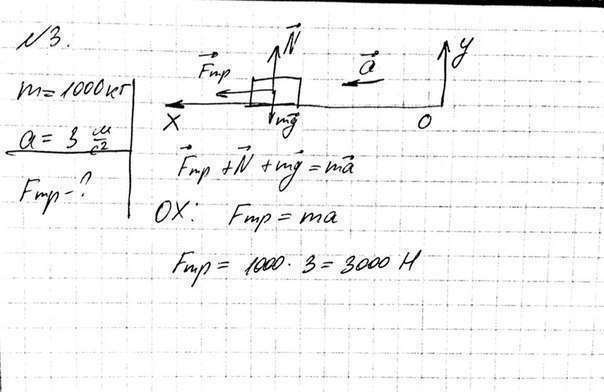 №3.
m=1000кг
a = 3 м/с²
Fтр-?
N⃗
F⃗тр
a⃗
y
X
mg⃗
O
F⃗тр + N⃗ + mg⃗ = ma⃗
OX: Fтр = ma
Fтр = 1000 · 3 = 3000 Н